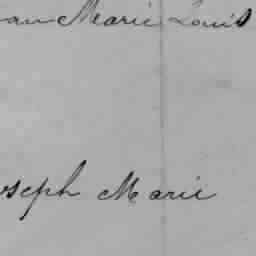 an Marie Louis
oseph Marie